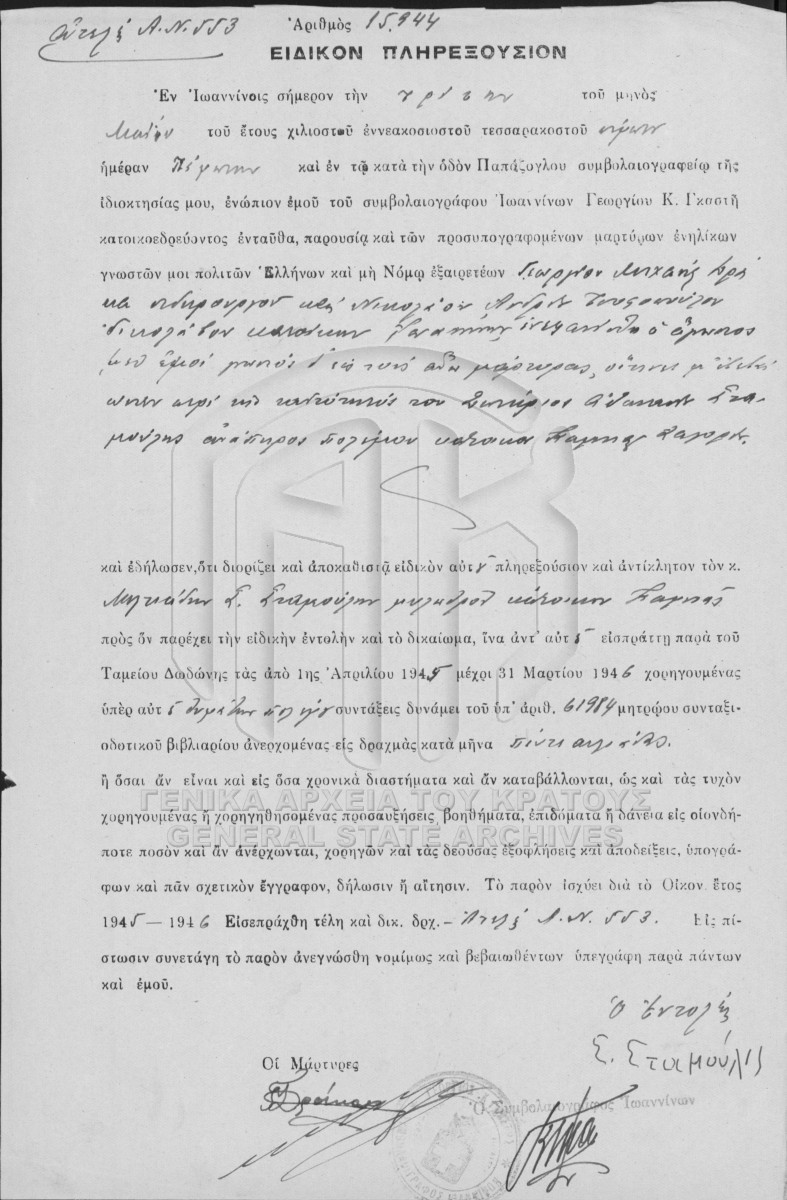 Ἀτελὲς Α.Ν. 553
Ἀριθμὸς 15.944
ΕΙΔΙΚΟΝ ΠΛΗΡΕΞΟΥΣΙΟΝ
Ἐν Ἰωαννίνοις σήμερον τὴν τρίτην τοῦ μηνὸς
Μαΐου τοῦ ἔτους χιλιοστοῦ ἐννεακοσιοστοῦ τεσσαρακοστοῦ πέμπτου
ἡμέραν Πέμπτην καὶ ἐν τῷ κατὰ τὴν ὁδὸν Παπάζογλου συμβολαιογραφείῳ τῆς
ἰδιοκτησίας μου, ἐνώπιον ἐμοῦ τοῦ συμβολαιογράφου Ἰωαννίνων Γεωργίου Κ. Γκαστῆ
κατοικοεδρεύοντος ἐνταῦθα, παρουσίᾳ καὶ τῶν προσυπογραφομένων μαρτύρων ἐνηλίκων
γνωστῶν μοι πολιτῶν Ἑλλήνων καὶ μὴ Νόμῳ ἐξαιρετέων Γεωργίου Μιχαὴλ Δρά
κα σιδηρουργοῦ καὶ Νικολάου
κατοίκων ἐνεφανίσθη ὁ ἄγνωστος
μὲν ἐμοὶ γνωστὸς δὲ εἰς τοὺς ἄνω μάρτυρας, οἵτινες μ' ἐβεβαί
ωσαν περὶ τῆς ταυτότητός του Σωτήριος Ἀθανασ. Στα-
μούλης ἀνάπηρος πολέμου κάτοικος
καὶ ἐδήλωσεν, ὅτι διορίζει καὶ ἀποκαθιστᾷ εἰδικὸν αὐτοῦ πληρεξούσιον καὶ ἀντίκλητον τὸν κ.
Μιλτιάδην Σ. Σταμούλην κάτοικον
πρὸς ὃν παρέχει τὴν εἰδικὴν ἐντολὴν καὶ τὸ δικαίωμα, ἵνα ἀντ' αὐτοῦ εἰσπράττῃ παρὰ τοῦ
Ταμείου Δωδώνης τὰς ἀπὸ 1ης Ἀπριλίου 1945 μέχρι 31 Μαρτίου 1946 χορηγουμένας
ὑπὲρ αὐτοῦ συντάξεις δυνάμει τοῦ ὑπ' ἀριθ. 61984 μητρῴου συνταξι-
οδοτικοῦ βιβλιαρίου ἀνερχομένας εἰς δραχμὰς κατὰ μῆνα
ἢ ὅσαι ἂν εἶναι καὶ εἰς ὅσα χρονικὰ διαστήματα καὶ ἂν καταβάλλονται, ὡς καὶ τὰς τυχὸν
χορηγουμένας ἢ χορηγηθησομένας προσαυξήσεις, βοηθήματα, ἐπιδόματα ἢ δάνεια εἰς οἱονδή-
ποτε ποσὸν καὶ ἂν ἀνέρχωνται, χορηγῶν καὶ τὰς δεούσας ἐξοφλήσεις καὶ ἀποδείξεις, ὑπογρά-
φων καὶ πᾶν σχετικὸν ἔγγραφον, δήλωσιν ἢ αἴτησιν. Τὸ παρὸν ἰσχύει διὰ τὸ Οἰκον. ἔτος
1945 — 1946 Εἰσεπράχθη τέλη καὶ δικ. δρχ. — Ἀτελὲς Α.Ν. 553. Εἰς πί-
στωσιν συνετάγη τὸ παρὸν ἀνεγνώσθη νομίμως καὶ βεβαιωθέντων ὑπεγράφη παρὰ πάντων
καὶ ἐμοῦ.
Ὁ Ἐντολεὺς
Σ. Σταμούλης
Οἱ Μάρτυρες
Ὁ Συμβολαιογράφος Ἰωαννίνων
ΓΕΝΙΚΑ ΑΡΧΕΙΑ ΤΟΥ ΚΡΑΤΟΥΣ
GENERAL STATE ARCHIVES